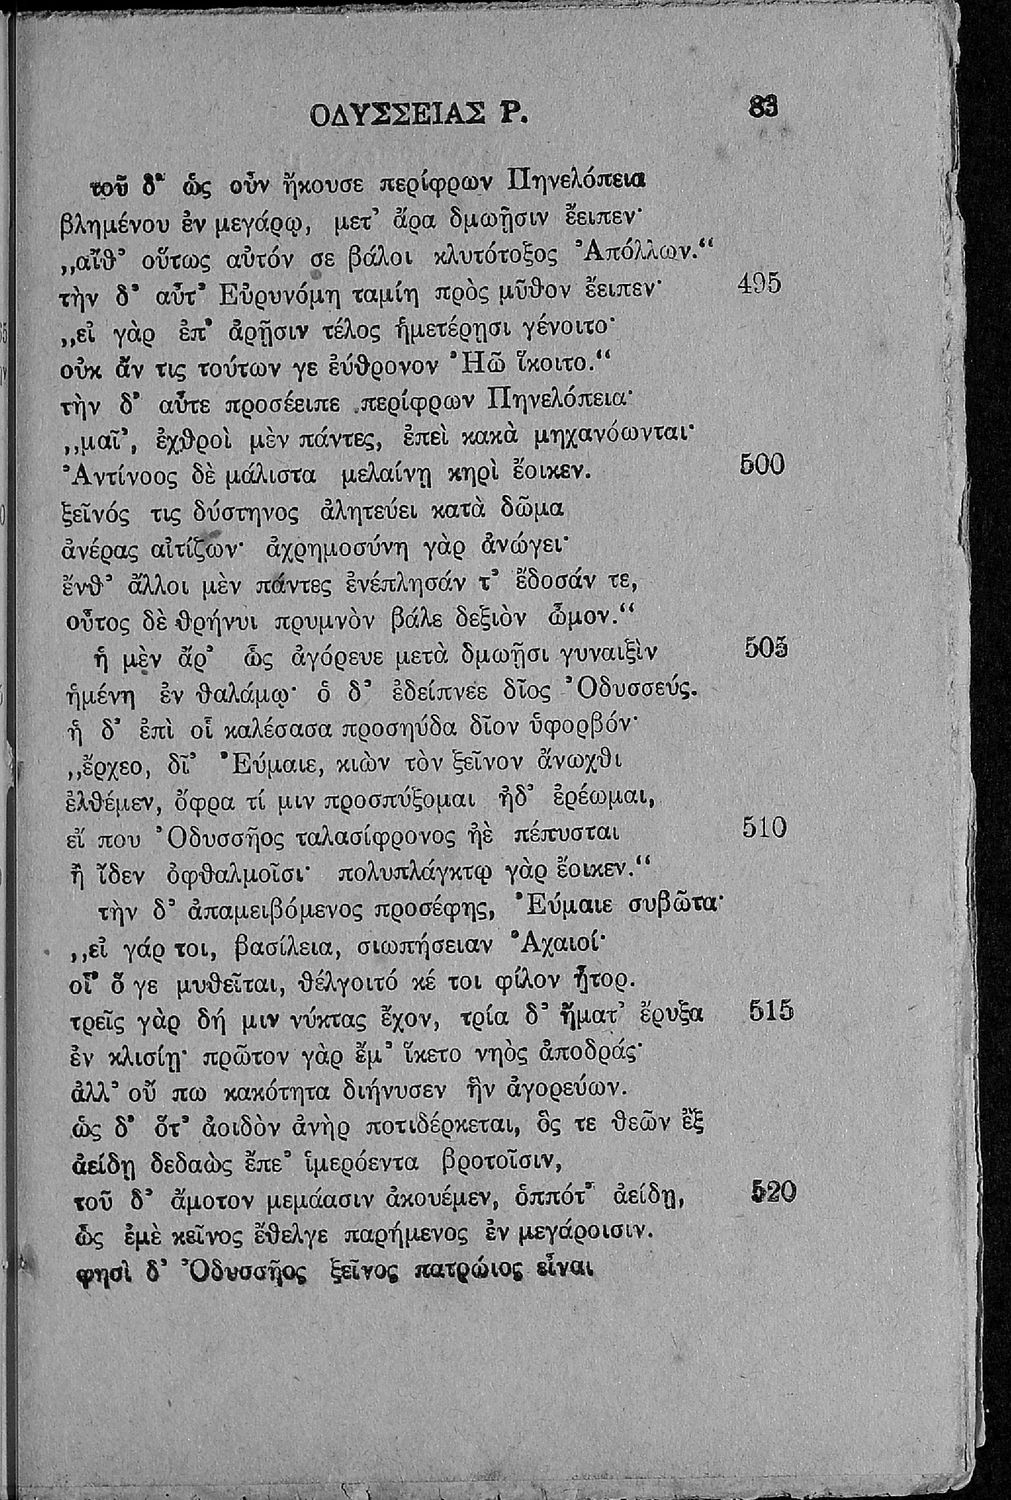 ΟΔΥΣΣΕΙΑΣ Ρ. 83
τοῦ δ' ὡς οὖν ἤκουσε περίφρων Πηνελόπεια
βλημένου ἐν μεγάρῳ, μετ' ἄρα δμωῇσιν ἔειπεν·
„αἴθ' οὕτως αὐτόν σε βάλοι κλυτότοξος Ἀπόλλων.“
τὴν δ' αὖτ' Εὐρυνόμη ταμίη πρὸς μῦθον ἔειπεν· 495
„εἰ γὰρ ἐπ' ἀρῇσιν τέλος ἡμετέρῃσι γένοιτο·
οὐκ ἄν τις τούτων γε ἐύθρονον Ἠῶ ἵκοιτο.“
τὴν δ' αὖτε προσέειπε περίφρων Πηνελόπεια·
„μαῖ', ἐχθροὶ μὲν πάντες, ἐπεὶ κακὰ μηχανόωνται·
Ἀντίνοος δὲ μάλιστα μελαίνῃ κηρὶ ἔοικεν. 500
ξεῖνός τις δύστηνος ἀλητεύει κατὰ δῶμα
ἀνέρας αἰτίζων· ἀχρημοσύνη γὰρ ἀνώγει·
ἔνθ' ἄλλοι μὲν πάντες ἐνέπλησάν τ' ἔδοσάν τε,
οὗτος δὲ θρήνυι πρυμνὸν βάλε δεξιὸν ὦμον.“
ἡ μὲν ἄρ' ὣς ἀγόρευε μετὰ δμωῇσι γυναιξὶν 505
ἡμένη ἐν θαλάμῳ· ὁ δ' ἐδείπνεε δῖος Ὀδυσσεύς.
ἡ δ' ἐπὶ οἷ καλέσασα προσηύδα δῖον ὑφορβόν·
„ἔρχεο, δῖ' Εὔμαιε, κιὼν τὸν ξεῖνον ἄνωχθι
ἐλθέμεν, ὄφρα τί μιν προσπύξομαι ἠδ' ἐρέωμαι,
εἴ που Ὀδυσσῆος ταλασίφρονος ἠὲ πέπυσται 510
ἢ ἴδεν ὀφθαλμοῖσι· πολυπλάγκτῳ γὰρ ἔοικεν.“
τὴν δ' ἀπαμειβόμενος προσέφης, Εὔμαιε συβῶτα·
„εἰ γάρ τοι, βασίλεια, σιωπήσειαν Ἀχαιοί·
οἷ' ὅ γε μυθεῖται, θέλγοιτό κέ τοι φίλον ἦτορ.
τρεῖς γὰρ δή μιν νύκτας ἔχον, τρία δ' ἤματ' ἔρυξα 515
ἐν κλισίῃ· πρῶτον γὰρ ἔμ' ἵκετο νηὸς ἀποδράς·
ἀλλ' οὔ πω κακότητα διήνυσεν ἣν ἀγορεύων.
ὡς δ' ὅτ' ἀοιδὸν ἀνὴρ ποτιδέρκεται, ὅς τε θεῶν ἒξ
ἀείδῃ δεδαὼς ἔπε' ἱμερόεντα βροτοῖσιν,
τοῦ δ' ἄμοτον μεμάασιν ἀκουέμεν, ὁππότ' ἀείδῃ, 520
ὣς ἐμὲ κεῖνος ἔθελγε παρήμενος ἐν μεγάροισιν.
φησὶ δ' Ὀδυσσῆος ξεῖνος πατρώιος εἶναι